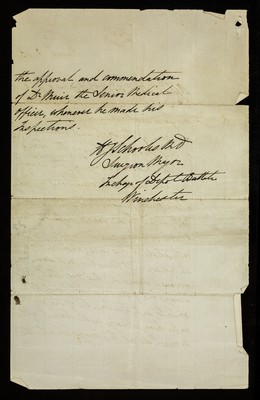 the approval and commendation
of Dr Muir the Senior Medical
officer, whenever he made his
Inspections.
H J Schooles M D
Surgeon Major
In charge of Depot Battn
Winchester